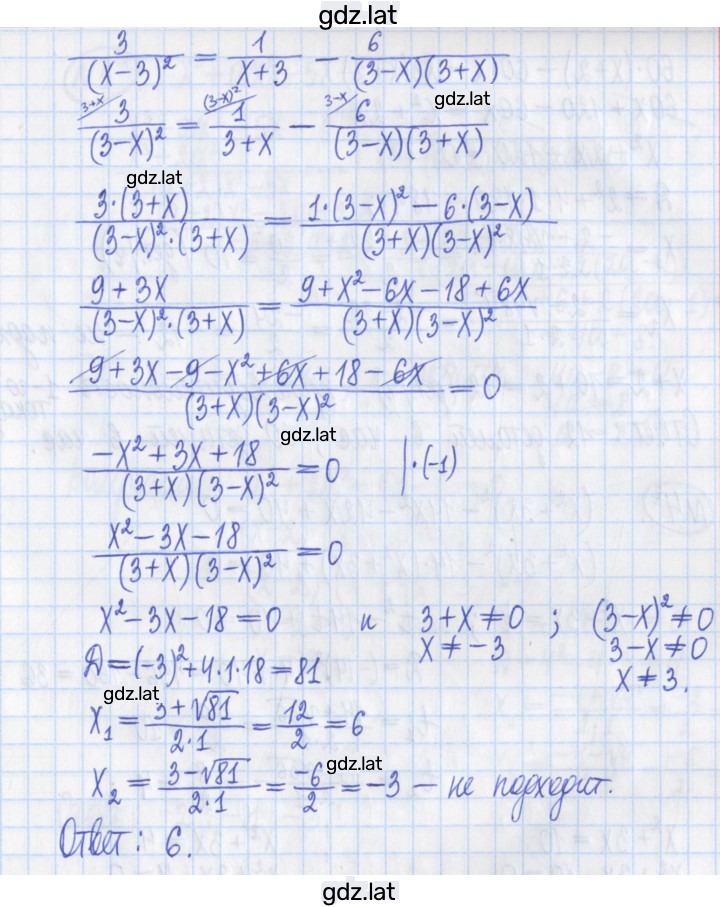 gdz.lat
3/(x-3)² = 1/(x+3) - 6/((3-x)(3+x))
gdz.lat
3+x (3-x)² 3-x
3/(3-x)² = 1/(3+x) - 6/((3-x)(3+x))
gdz.lat
3·(3+x)/((3-x)²·(3+x)) = (1·(3-x)² - 6·(3-x))/((3+x)(3-x)²)
(9+3x)/((3-x)²·(3+x)) = (9+x²-6x-18+6x)/((3+x)(3-x)²)
(9+3x-9-x²+6x+18-6x)/((3+x)(3-x)²) = 0
gdz.lat
(-x²+3x+18)/((3+x)(3-x)²) = 0 |·(-1)
(x²-3x-18)/((3+x)(3-x)²) = 0
x²-3x-18=0 и 3+x≠0 ; (3-x)²≠0
x≠-3 3-x≠0
Д=(-3)²+4·1·18=81 x≠3.
gdz.lat
x₁ = (3+√81)/(2·1) = 12/2 = 6
gdz.lat
x₂ = (3-√81)/(2·1) = -6/2 = -3 – не подходит.
Ответ: 6.
gdz.lat